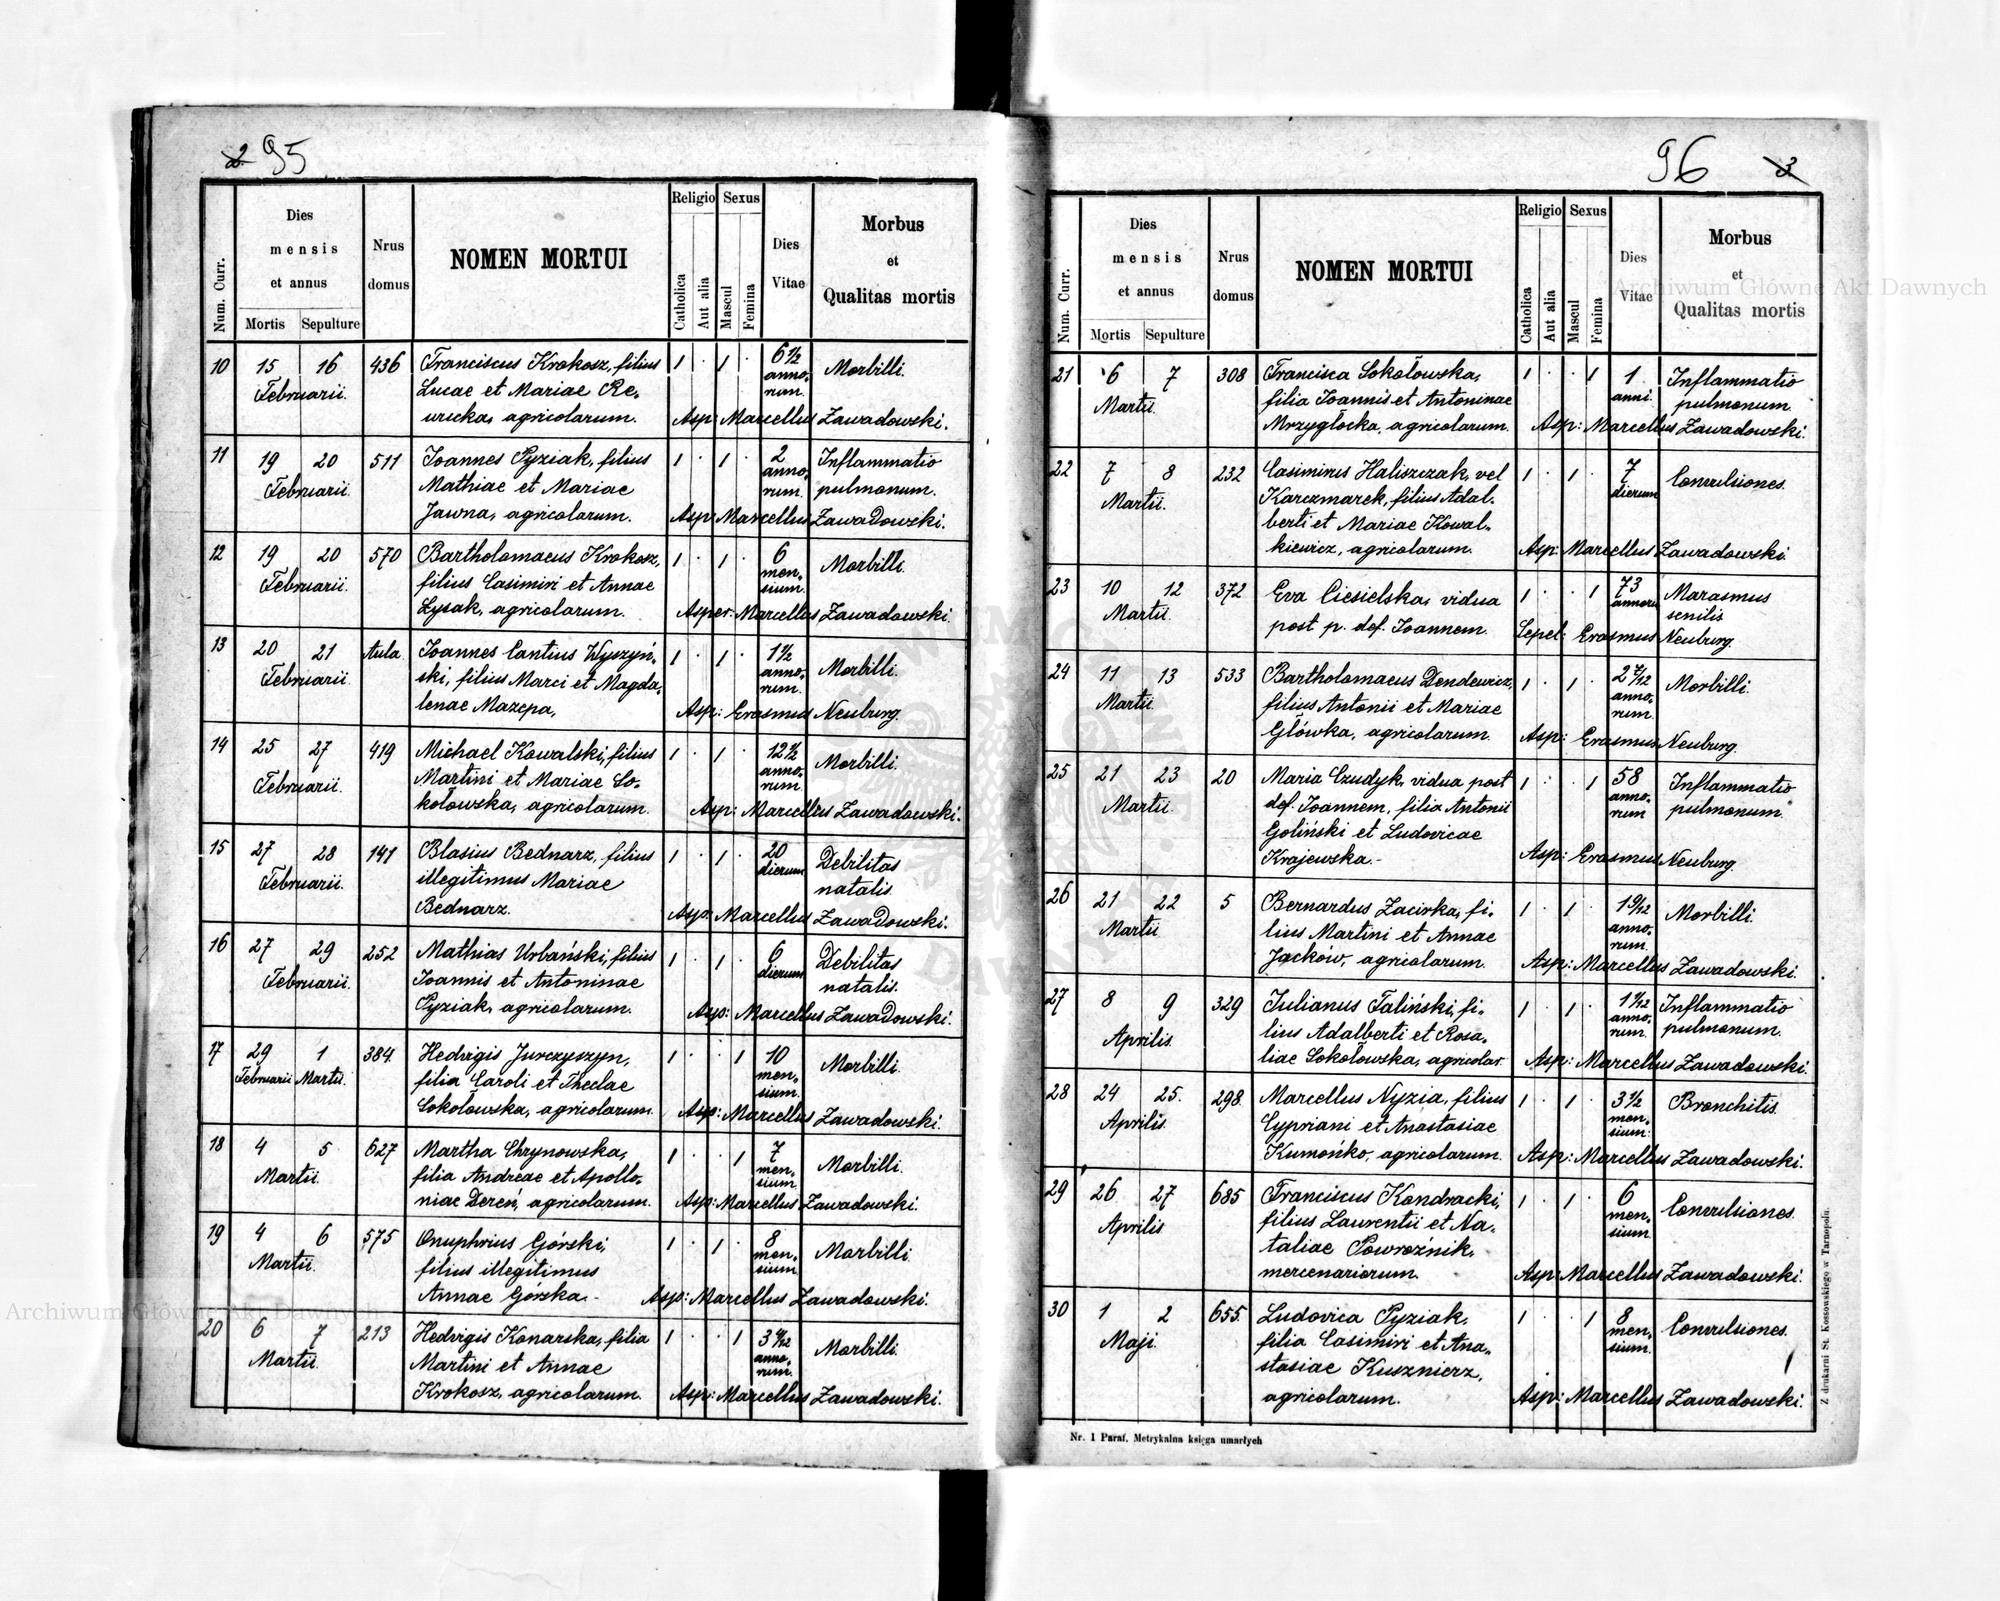 2 95
Num. Curr.
Dies mensis et annus
Mortis Sepulture
Nrus domus
NOMEN MORTUI
Religio
Catholica
Aut alia
Sexus
Mascul
Femina
Dies Vitae
Morbus et Qualitas mortis
10 15 16 436 Franciscus Krokosz, filius 1 · 1 · 6 1/2 Morbilli.
Februarii. Lucae et Mariae Re- anno-
uricka, agricolarum. rum. Asp: Marcellus Zawadowski.
11 19 20 511 Joannes Pyziak, filius 1 · 1 · 2 Inflammatio
Februarii. Mathiae et Mariae anno- pulmonum.
Jawna, agricolarum. rum. Asp: Marcellus Zawadowski.
12 19 20 570 Bartholomaeus Krokosz, 1 · 1 · 6 Morbilli.
Februarii. filius Casimiri et Annae men-
Łysak, agricolarum. sium. Asper: Marcellus Zawadowski.
13 20 21 Aula Joannes Cantius Wyszyń- 1 · 1 · 1 1/2 Morbilli.
Februarii. ski, filius Marci et Magda- anno-
lenae Mazepa, rum. Asp: Erasmus Neuburg.
14 25 27 419 Michael Kowalski, filius 1 · 1 · 12 1/2 Morbilli.
Februarii. Martini et Mariae So- anno-
kołowska, agricolarum. rum. Asp: Marcellus Zawadowski.
15 27 28 141 Blasius Bednarz, filius 1 · 1 · 20 Debilitas
Februarii. illegitimus Mariae dierum natalis.
Bednarz. Asp: Marcellus Zawadowski.
16 27 29 252 Mathias Urbański, filius 1 · 1 · 6 Debilitas
Februarii. Joannis et Antoninae dierum natalis.
Pyziak, agricolarum. Asp: Marcellus Zawadowski.
17 29 1 384. Hedvigis Jurczyszyn, 1 · · 1 10 Morbilli.
Februarii Martii. filia Caroli et Theclae men-
Sokołowska, agricolarum. sium. Asp: Marcellus Zawadowski.
18 4 5 627 Martha Chrynowska, 1 · · 1 7 Morbilli.
Martii. filia Andreae et Apollo- men-
niae Dereń, agricolarum. sium. Asp: Marcellus Zawadowski.
19 4 6 575 Onuphrius Górski, 1 · 1 · 8 Morbilli.
Martii. filius illegitimus men-
Annae Górska.- sium. Asp: Marcellus Zawadowski.
20 6 7 213 Hedvigis Konarska, filia 1 · · 1 Morbilli
Martii. Martini et Annae anno-
Krokosz, agricolarum. rum. Asp: Marcellus Zawadowski.
96 3
Num. Curr.
Dies mensis et annus
Mortis Sepulture
Nrus domus
NOMEN MORTUI
Religio
Catholica
Aut alia
Sexus
Mascul
Femina
Dies Vitae
Morbus et Qualitas mortis
21 6 7 308 Francisca Sokołowska, 1 · · 1 1 Inflammatio
Martii. filia Joannis et Antoninae anni. pulmonum.
Mrzygłocka, agricolarum. Asp: Marcellus Zawadowski.
22 7 8 232 Casimirus Haliszczak, vel 1 · 1 · 7 Convulsiones.
Martii. Karczmarek, filius Adal- dierum
berti et Mariae Kowal-
kiewicz, agricolarum. Asp: Marcellus Zawadowski.
23 10 12 372 Eva Ciesielska, vidua 1 · · 1 73 Marasmus
Martii. post p. def. Joannem. annorum senilis
Sepel: Erasmus Neuburg.
24 11 13 533 Bartholomaeus Dendewicz, 1 · 1 · 2 7/12 Morbilli.
Martii. filius Antonii et Mariae anno-
Główka, agricolarum. rum. Asp: Erasmus Neuburg.
25 21 23 20 Maria Czudyk, vidua post 1 · · 1 58 Inflammatio
Martii. def. Joannem, filia Antonii anno- pulmonum.
Goliński et Ludovicae rum
Krajewska.- Asp: Erasmus Neuburg.
26 21 22 5 Bernardus Zacirka, fi- 1 · 1 · Morbilli.
Martii lius Martini et Annae anno-
Jacków, agricolarum. rum. Asp: Marcellus Zawadowski.
27 8 9 329 Julianus Taliński, fi- 1 · 1 · Inflammatio
Aprilis. lius Adalberti et Rosa- anno- pulmonum.
liae Sokołowska, agricolar. rum. Asp: Marcellus Zawadowski.
28 24 25. 298. Marcellus Nyzia, filius 1 · 1 · 3 1/2 Bronchitis.
Aprilis. Cypriani et Anastasiae men-
Kumońko, agricolarum. sium. Asp: Marcellus Zawadowski.
29 26 27 685 Franciscus Kondracki, 1 · 1 · 6 Convulsiones.
Aprilis filius Laurentii et Na- men-
taliae Powroźnik, sium.
mercenariorum. Asp: Marcellus Zawadowski.
30 1 2 655. Ludovica Pyziak, 1 · · 1 8 Convulsiones.
Maji. filia Casimiri et Ana- men-
stasiae Kusznierz, sium.
agricolarum. Asp: Marcellus Zawadowski.
Nr. 1 Paraf. Metrykalna księga umarłych
Z drukarni St. Kossowskiego w Tarnopolu.
Archiwum Główne Akt Dawnych
Archiwum Główne Akt Dawnych